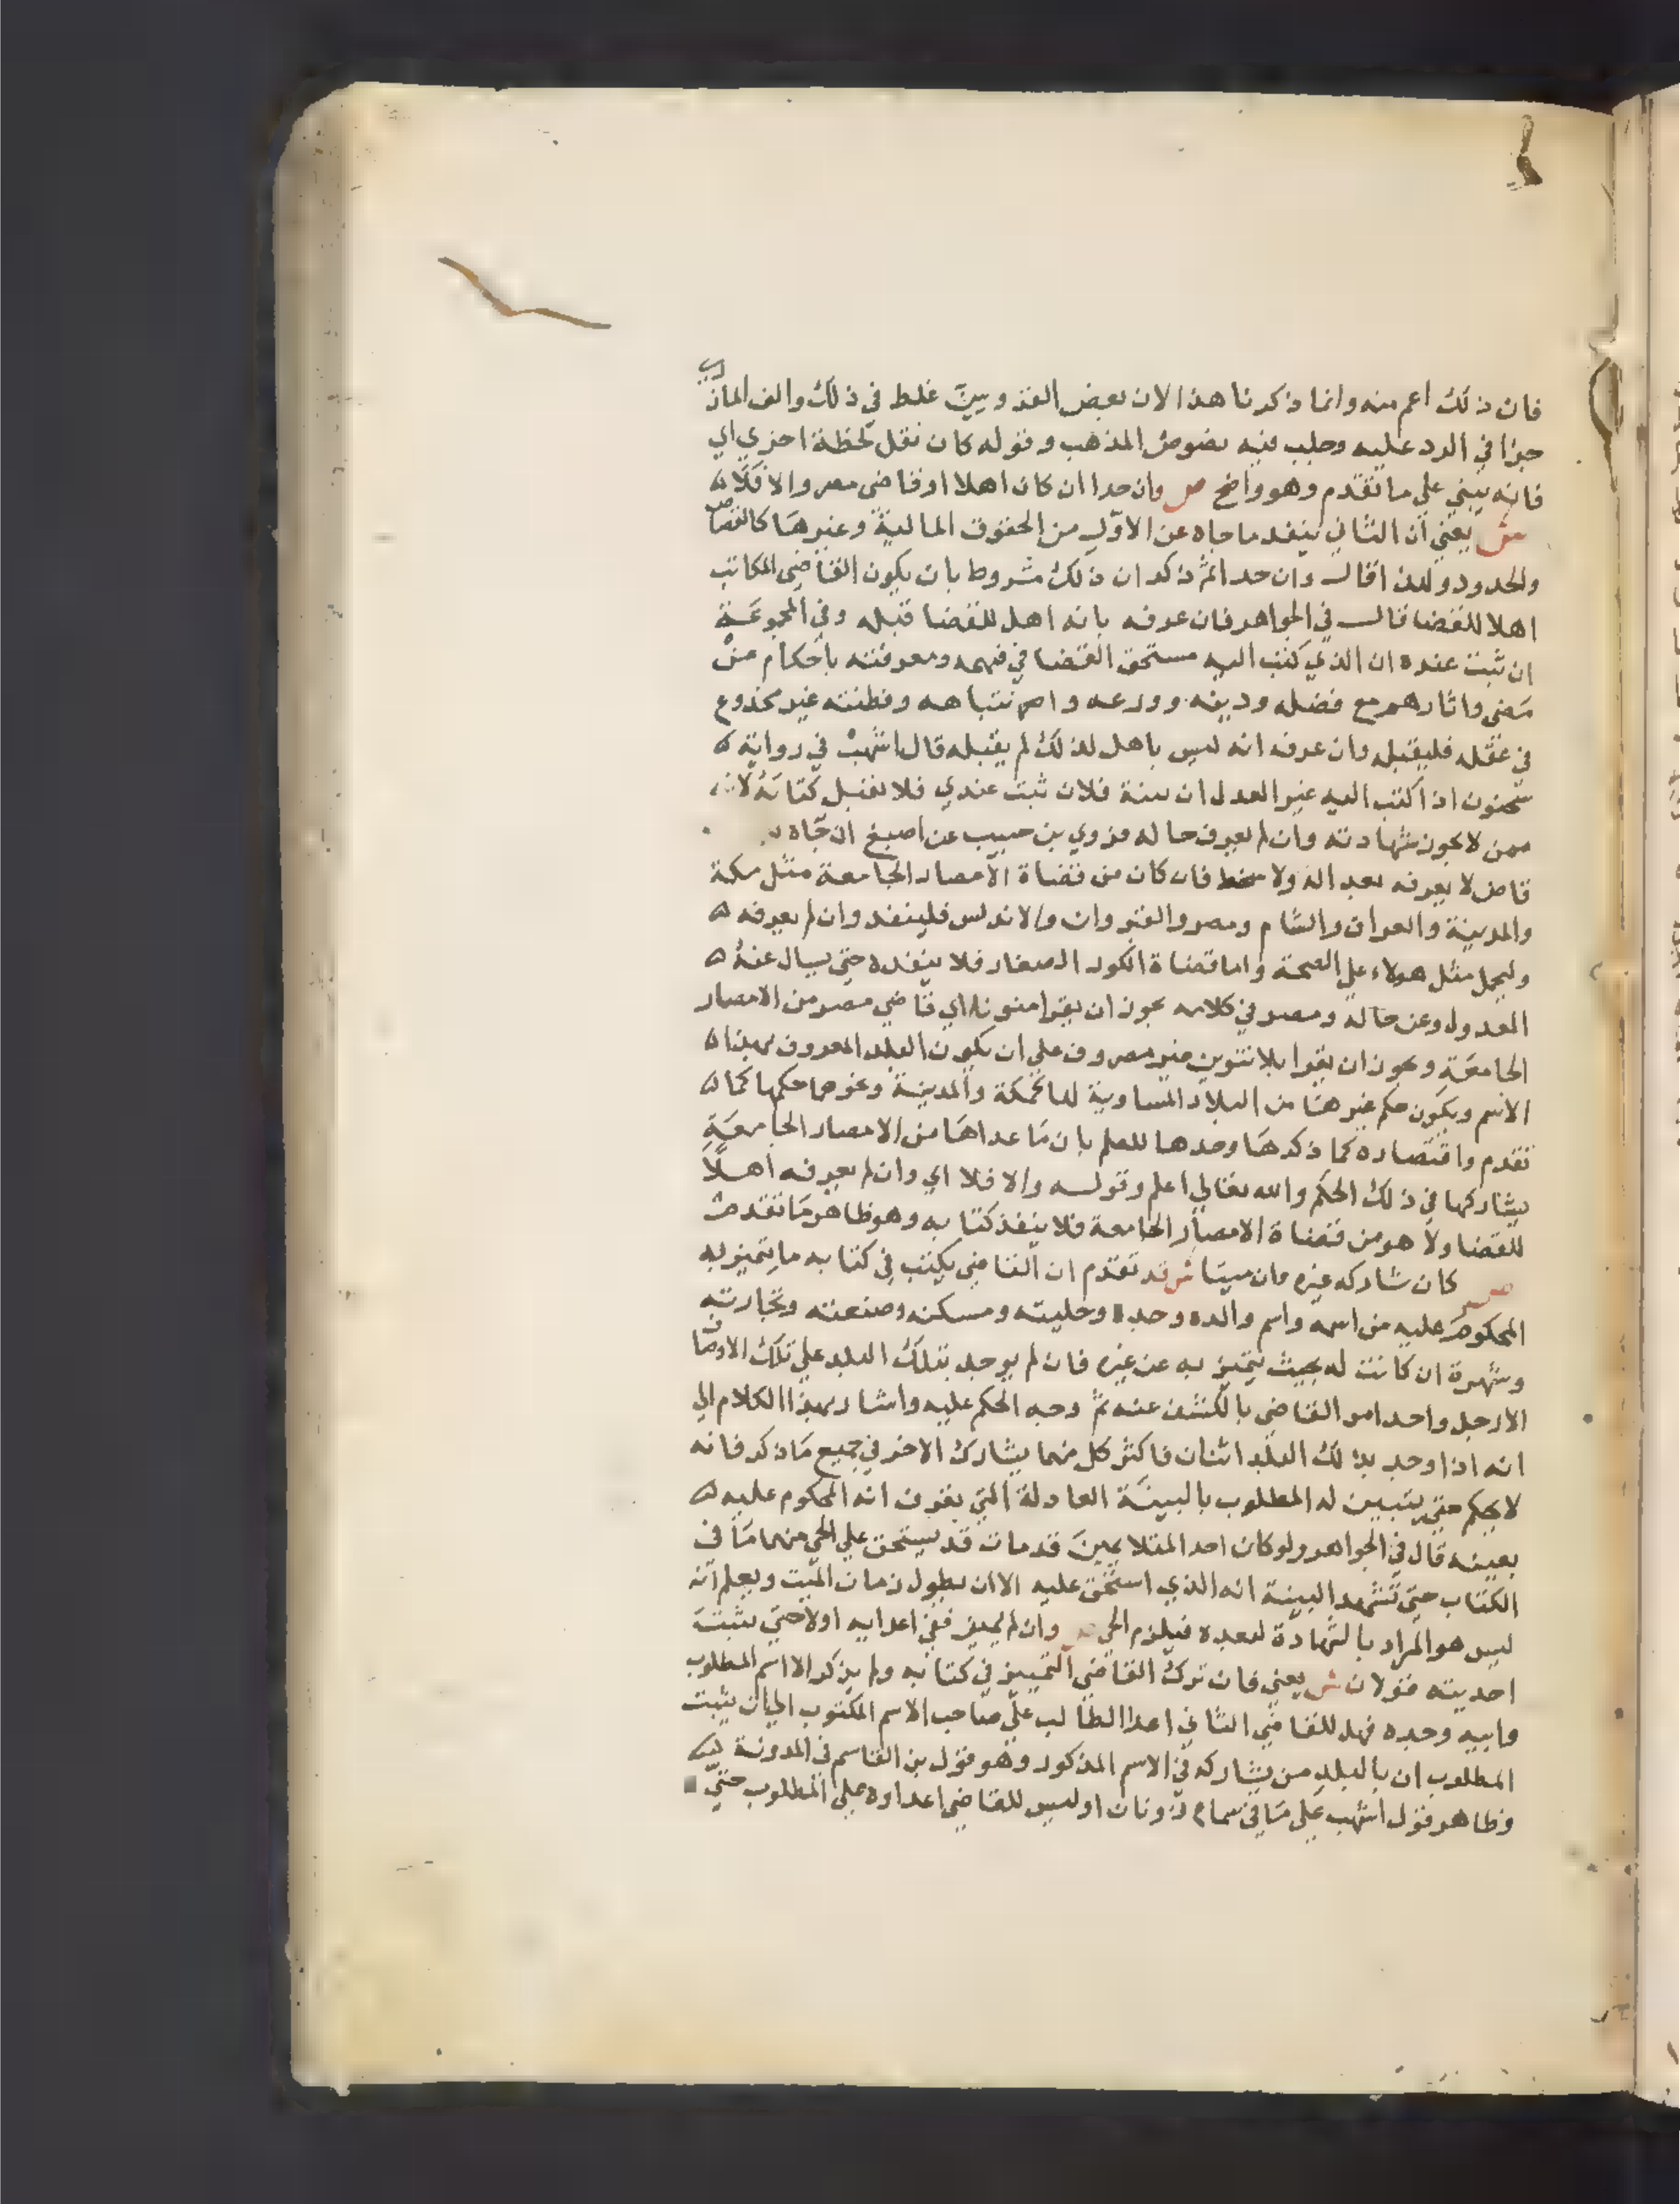 فان ذلك اعم منه وانما ذكرنا هذا لان بعض الفذ وبين غلط في ذلك والف المازري
جزا في الرد عليه وجلب فيه نصوص المذهب وقوله كان نقل لخطة اخري اي
فانه يبني علي ما تقدم وهو واضح ص وان حدا ان كان اهلا او قاضي مصر والا فلا
ش يعني ان الثاني ينفد ما جاه عن الاول من الحقوق المالية وغيرها كالقصاص
والحدود ولذا قال وان حدا ثم ذكر ان ذلك مشروط بان يكون القاضي المكاتب
اهلا للقضا قال في الجواهر فان عرفه بانه اهل للقضا قبله وفي المجموعة
ان ثبت عنده ان الذي كتب اليه مستحق القضا في فهمه ومعرفته باحكام من
مضي واثارهم مع فضله ودينه وورعه وانتباهه وفطنته غير مخدوع
في عقله فليقبله وان عرفه انه ليس باهل لذلك لم يقبله قال اشهب في رواية
سحنون اذا كتب اليه غير العدل ان بينة فلان ثبت عندي فلا يقبل كتابه لانه
ممن لا تجوز شهادته وان لم يعرف حاله فروي بن حبيب عن اصبغ ان جاه
قاض لا يعرفه بعدالة ولا سخط فان كان من قضاة الامصار الجامعة مثل مكة
والمدينة والعراق والشام ومصر والقيروان والاندلس فلينفد وان لم يعرفه
وليحمل مثل هولاء علي الصحة واما قضاة الكور الصغار فلا ينفده حتي يسال عنه
العدول وعن حاله ومصر في كلامه يجوز ان يقرا منونا اي قاضي مصر من الامصار
الجامعة ويجوز ان يقرا بلا تنوين غير مصروف علي ان يكون البلد المعروف بهذا
الاسم ويكون حكم غيرها من البلاد المساوية لها كمكة والمدينة ونحوهما حكمها كما
تقدم واقتصاره كما ذكرها وحدها للعلم بان ما عداها من الامصار الجامعة
يشاركها في ذلك الحكم والله تعالي اعلم وقوله والا فلا اي وان لم يعرفه اهلا
للقضا ولا هو من قضاة الامصار الجامعة فلا ينفذ كتابه وهو ظاهر ما تقدم
ص كان شاركه غيره وان ميتا ش قد تقدم ان القاضي يكتب في كتابه ما يتميز به
المحكوم عليه من اسمه واسم والده وجده وحليته ومسكنه وصنعته وتجارته
وشهرة ان كانت له بحيث يتميز به عن غيره فان لم يوجد بتلك البلد علي تلك الاوصاف
الا رجل واحد امر القاضي بالكشف عنه ثم وجه الحكم عليه واشار بهذا الكلام الي
انه اذا وجد بذلك البلد اثنان فاكثر كل منهما يشارك الاخر في جميع ما ذكر فانه
لا يحكم حتي يتبين له المطلوب بالبينة العادلة التي تعرف انه المحكوم عليه
بعينه قال في الجواهر ولو كان احد المتلايمين قد مات قد يستحق علي الحي منهما ما في
الكتاب حتي تشهد البينة انه الذي استحق عليه الا ان يطول زمان الميت ويعلم انه
ليس هو المراد بالشهادة لبعده فيلزم الحي ص وان لم يميز ففي اعدايه اولا حتي يثبت
احديته قولان ش يعني فان ترك القاضي التمييز في كتابه ولم يذكر الا اسم المطلوب
وابيه وحده فهل للقاضي الثاني اعدا الطالب علي صاحب الاسم المكتوب الي ان يثبت
المطلوب ان بالبلد من يشاركه في الاسم المذكور وهو قول بن القاسم في المدونة
وظاهر قول اشهب علي ما في سماع زونان او ليس للقاضي اعداوه علي المطلوب حتي